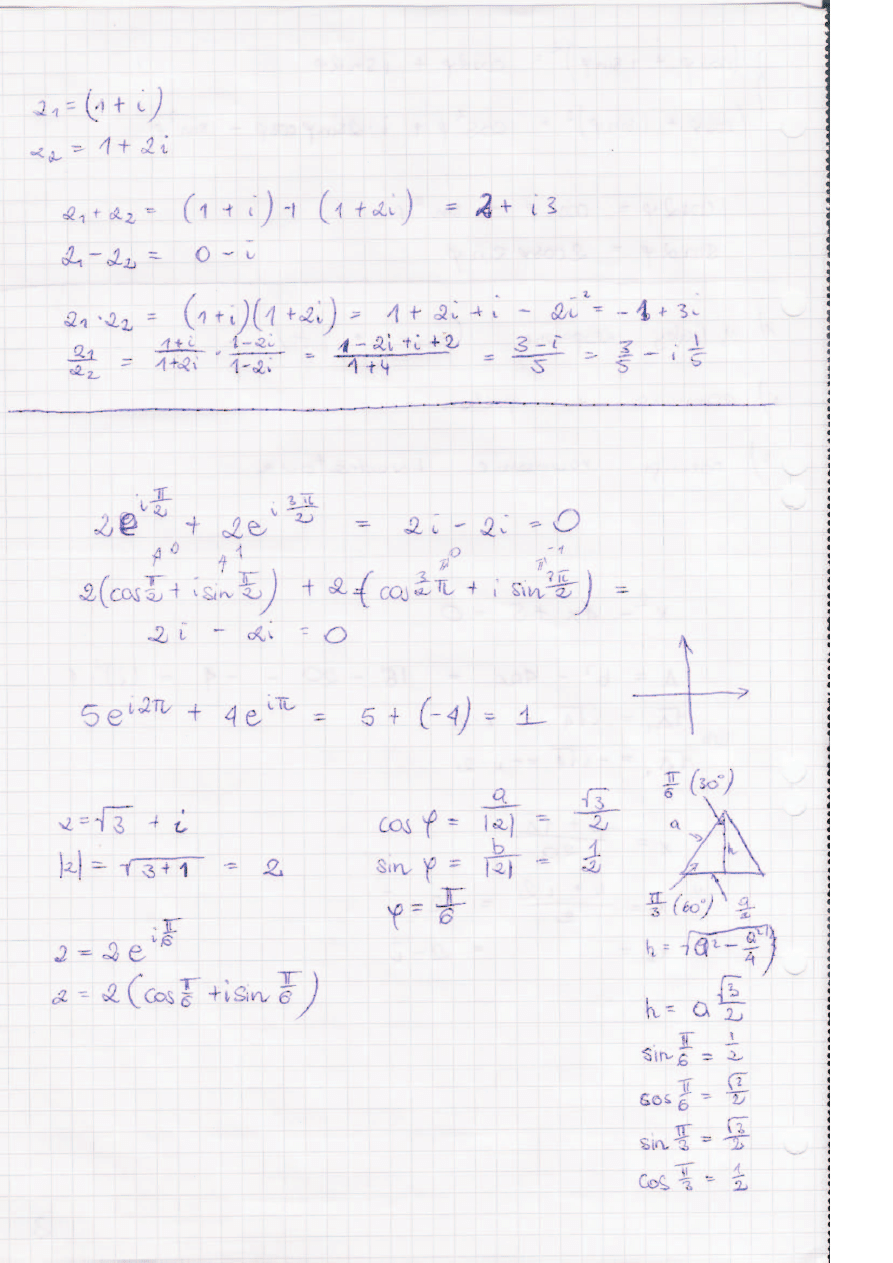 z₁ = (1 + i)
z₂ = 1 + 2i
z₁ + z₂ = (1 + i) + (1 + 2i) = 2 + i3
z₁ − z₂ = 0 − i
z₁ · z₂ = (1+i)(1+2i) = 1 + 2i + i − 2i² = −1 + 3i
z₁/z₂ = (1+i)/(1+2i) · (1−2i)/(1−2i) = (1−2i+i+2)/(1+4) = (3−i)/5 = 3/5 − i 1/5
2e^{iπ/2} + 2e^{i3π/2} = 2i − 2i = 0
0 1 0 −1
2(cos π/2 + i sin π/2) + 2 (cos 3/2 π + i sin 3π/2) =
2i − 2i = 0
5e^{i2π} + 4e^{iπ} = 5 + (−4) = 1
z = √3 + i
|z| = √(3+1) = 2
z = 2e^{iπ/6}
z = 2(cos π/6 + i sin π/6)
cos φ = a/|z| = √3/2
sin φ = b/|z| = 1/2
φ = π/6
π/6 (30°)
a
h
π/3 (60°) a/2
h = √(a² − a²/4)
h = a √3/2
sin π/6 = 1/2
cos π/6 = √2/2
sin π/3 = √3/2
cos π/3 = 1/2